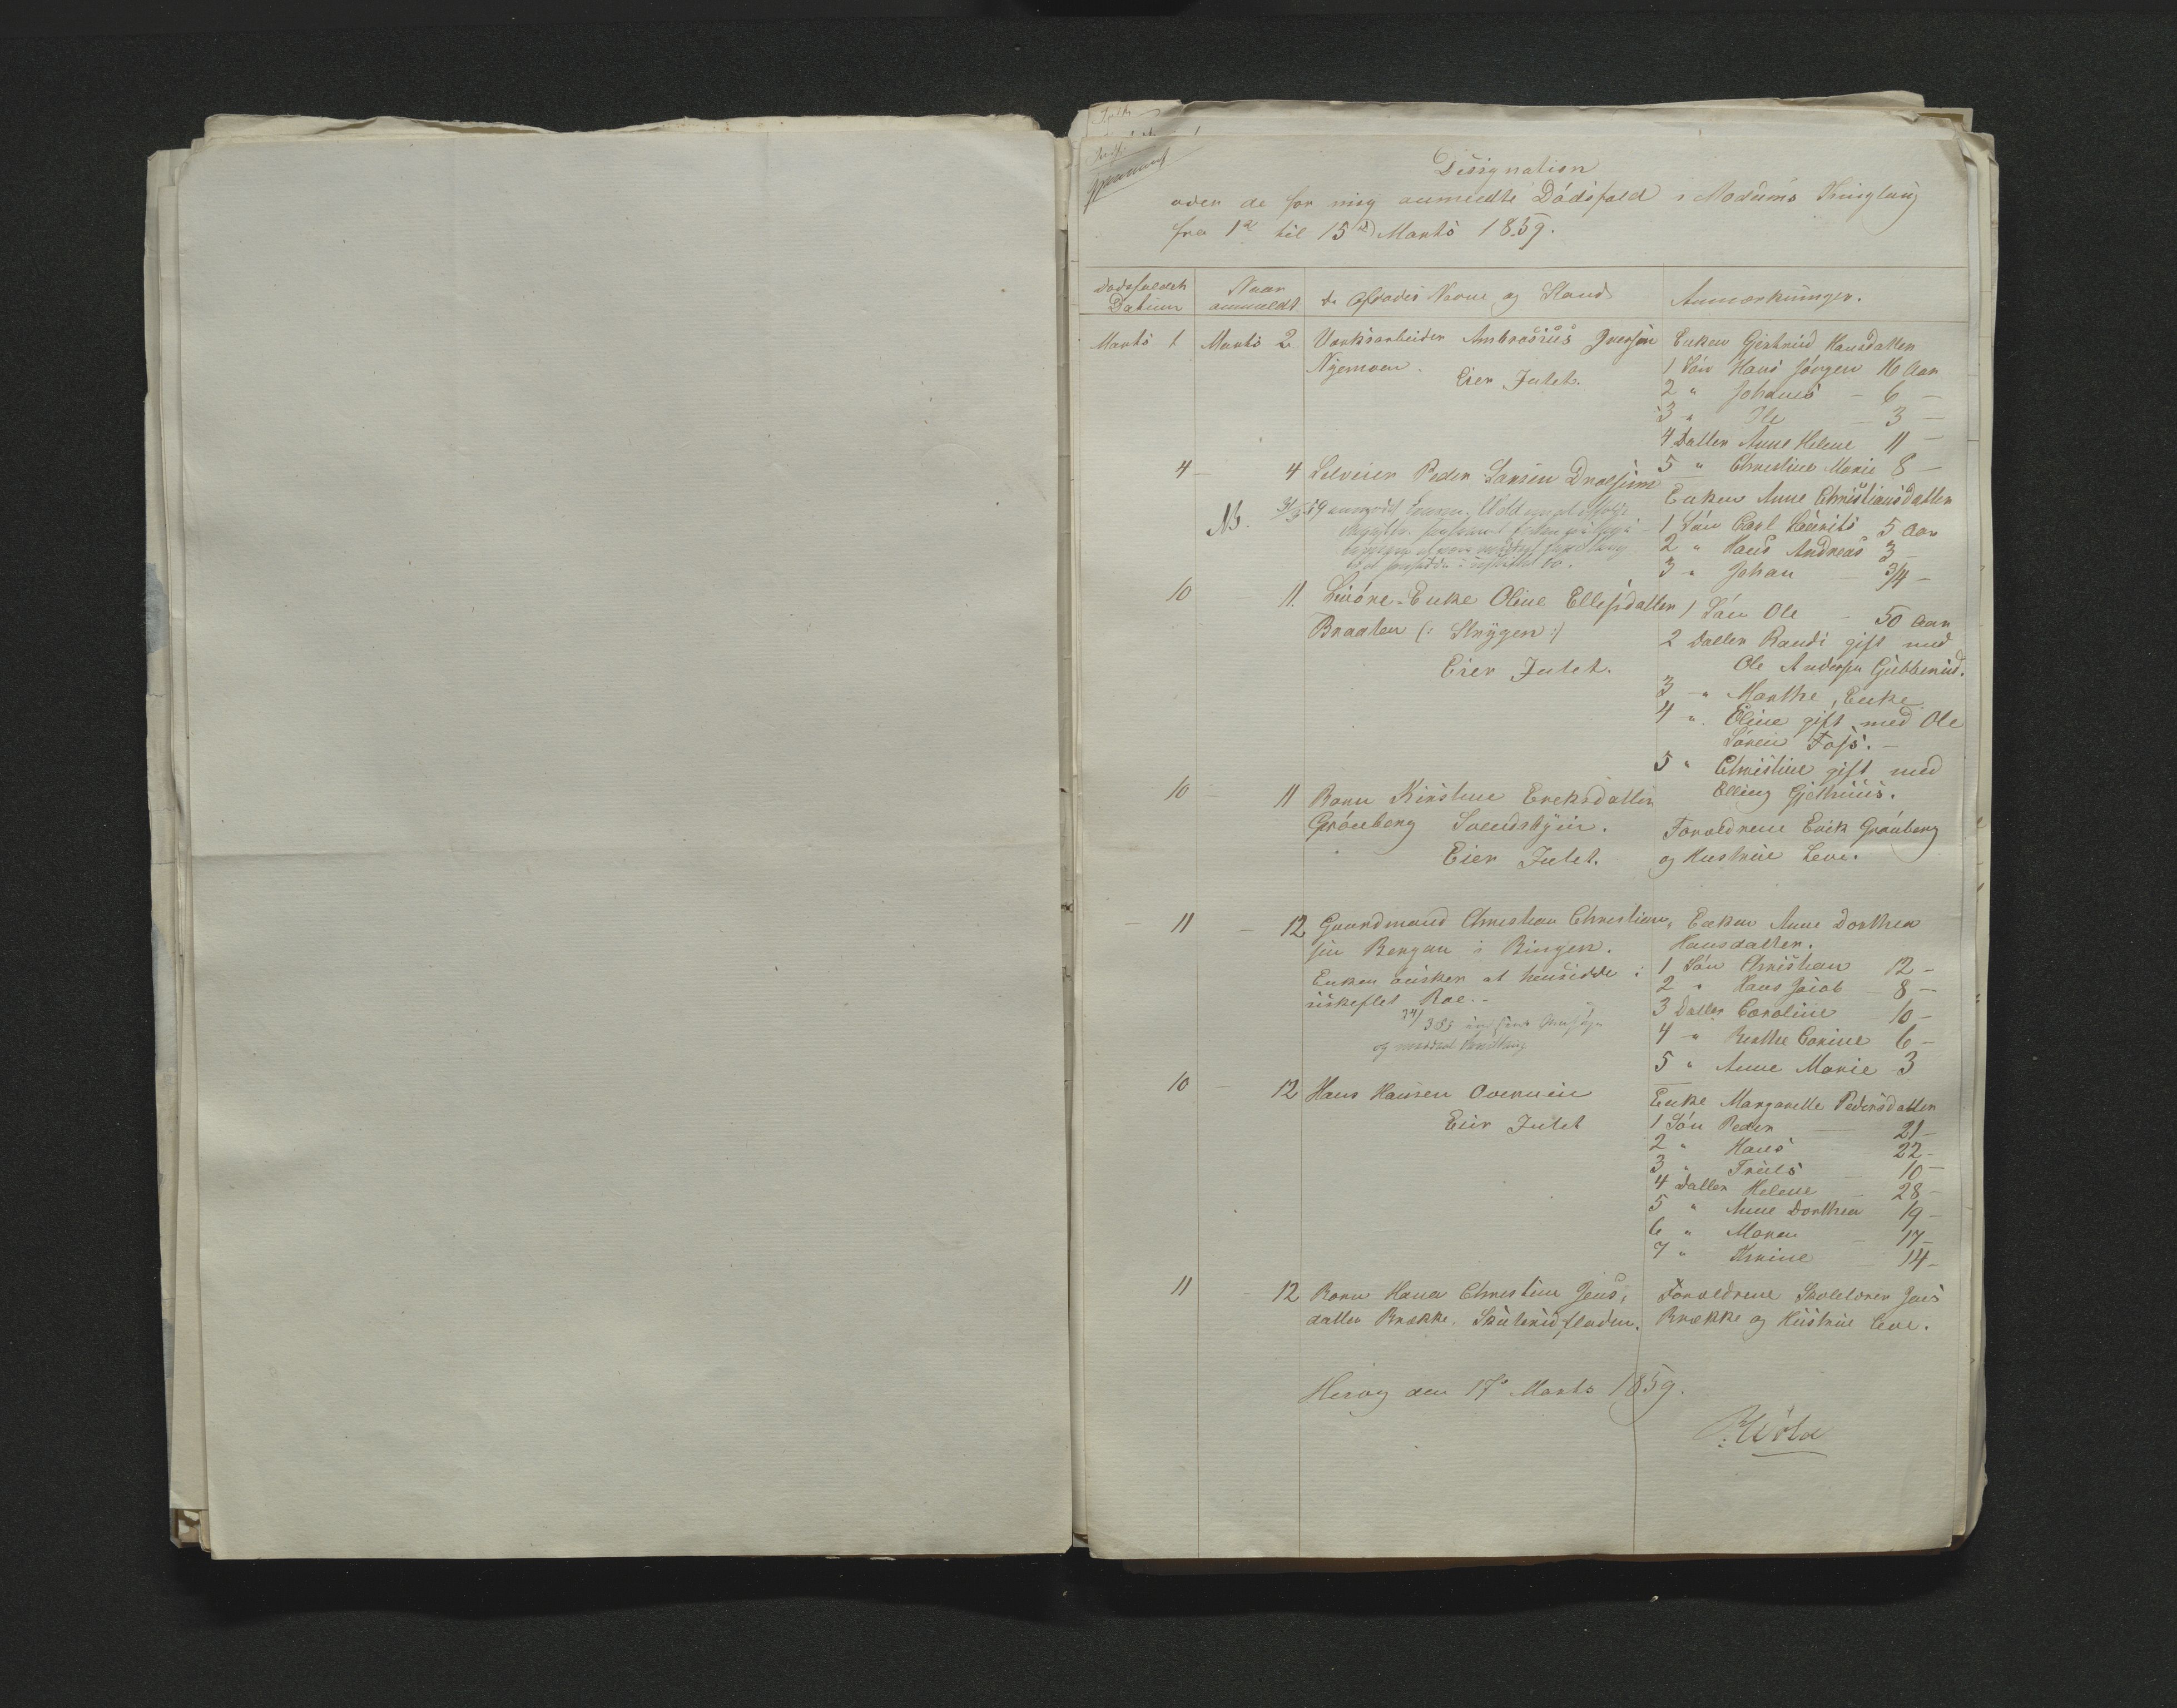 Designation
over de for mig anmeldte Dödsfald i Modums Thinglaug
fra 1ste til 15de Marts 1859.
Dødsfaldets Datum
Naar anmeldt
de Afdödes Navne og Stand
Anmærkninger.
Marts 1 Marts 2 Værksarbeider Ambrosius Iversen
Nyemoen.
Eier Intet.
Enken Gjertrud Hansdatter
1 Sön Hans Jörgen 16 Aar
2 " Johanes - 6 -
3 " Ole - 3 -
4 Datter Anne Helene 11 -
5 " Christine Marie 8 -
4 - 4 Selveier Peder Larsen Drolsum
NB. 31/3 59
Enken Anne Christiansdatter
1 Sön Carl Laurits 5 Aar
2 " Hans Andreas 3 -
3 " Johan 3/4 -
10 - 11. Livöre-Enke Oline Ellefsdatter
Braaten (: Strygen :)
Eier Intet.
1 Sön Ole - 50 Aar
2 Datter Randi gift med
Ole Andersen Gubberud.
3 " Marthe, Enke
4 " Eline gift med Ole
Sören Foss. -
5 " Christine gift med
Elling Gjethuus.
10 - 11 Barn Kirstine Ereksdatter
Grönberg
Eier Intet.
Forældrene Erik Grönberg
og Hustrue Leve.
- 11 - 12 Gaardmand Christian Christian-
sen Bergan i Bingen.
Enken önsker at hensidde i
uskeftet Boe. -
Enken Anne Dorthea
Hansdatter.
1 Sön Christian 12 -
2 " Hans Jacob 8 -
3 Datter Caroline 10 -
4 " Berthe Carine 6 -
5 " Anne Marie 3
10 - 12 Hans Hansen Overnein
Eier Intet
Enke Margarethe Pedersdatter
1 Sön Peder 21 -
2 " Hans 22 -
3 " Truls 10 -
4 Datter Helene 28 -
5 " Anne Dorthea 19 -
6 " Maren - 17 -
7 " 14 -
11 - 12 Barn Hana Christine Jens-
datter Brække.
Forældrene Skolelærer Jens
Brække og Hustrue Leve.
den 17de Marts 1859.